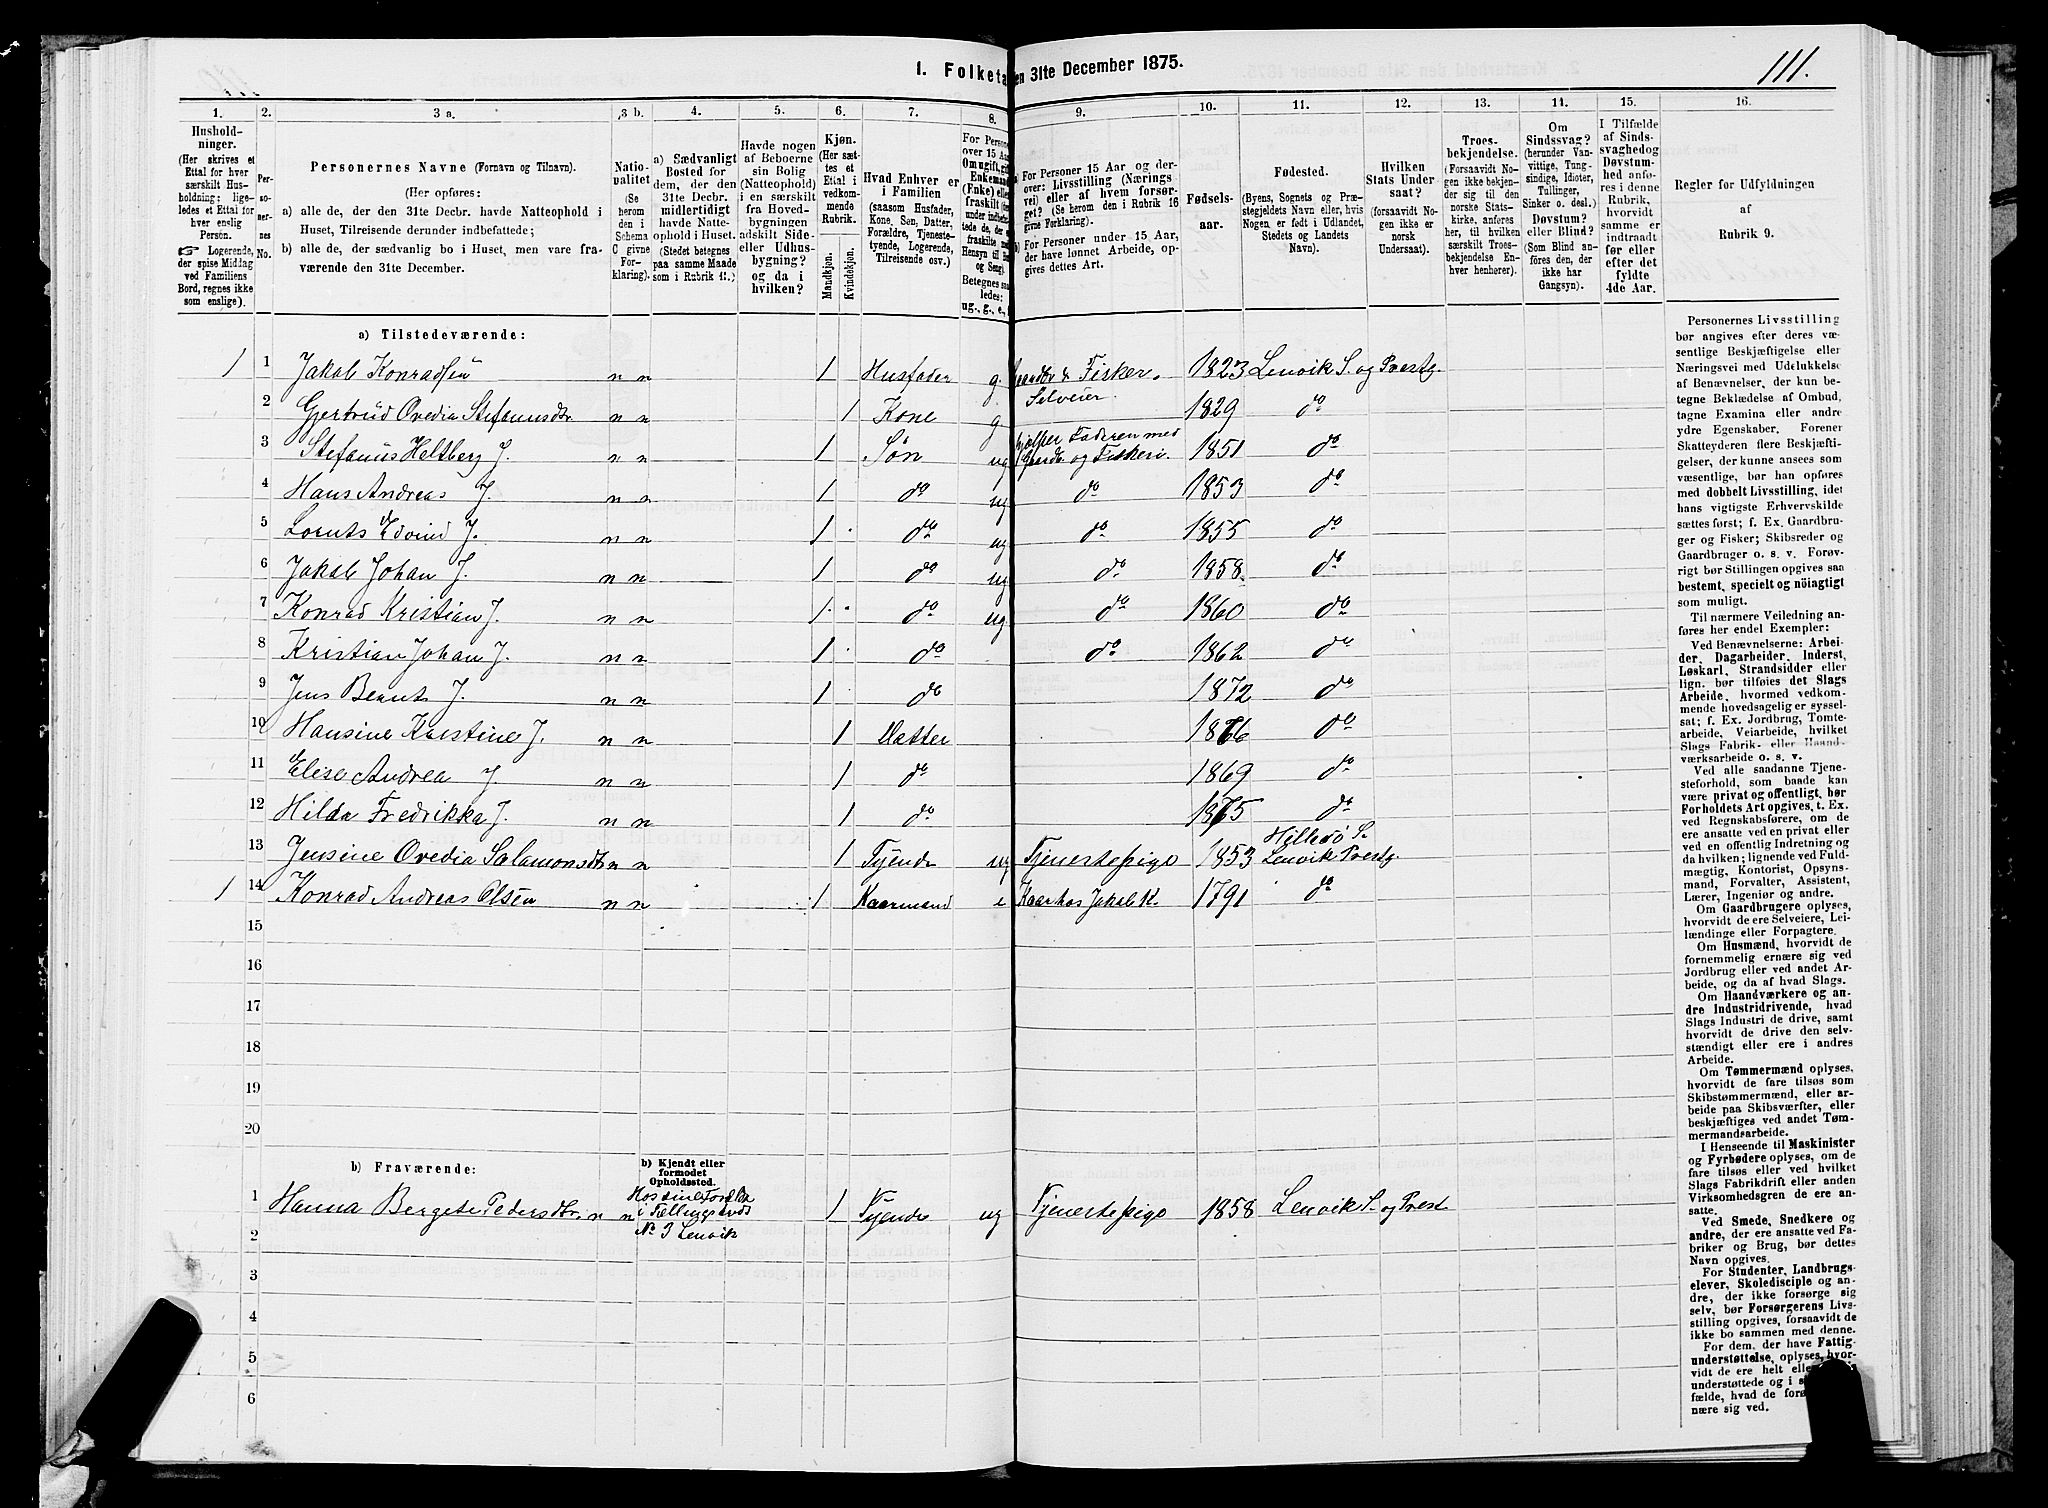 1. Folketa en 31te December 1875.
111.
1. 2. 3 a. 3 b. 4. 5. 6. 7. 8. 9. 10. 11. 12. 13. 14. 15. 16.
Hushold-
ninger.
(Her skrives et
Ettal for hver
særskilt Hus-
holdning; lige-
ledes et Ettal for
hver enslig
Person.
☞ Logerende,
der spise Middag
ved Familiens
Bord, regnes ikke
som enslige).
Per-
so-
ner-
nes
No.
Personernes Navne (Fornavn og Tilnavn).
(Her opføres:
a) alle de, der den 31te Decbr. havde Natteophold i
Huset, Tilreisende derunder indbefattede;
b) alle de, der sædvanlig bo i Huset, men vare fra-
værende den 31te December.
Natio-
nalitet
(Se
herom
den i
Schema
C givne
For-
klaring).
a) Sædvanligt
Bosted for
dem, der den
31te Decbr.
midlertidigt
havde Natte-
ophold i Huset.
(Stedet betegnes
paa samme Maade
som i Rubrik 11.)
Havde nogen
af Beboerne
sin Bolig
(Natteophold)
i en særskilt
fra Hoved-
bygningen
adskilt Side-
eller Udhus-
bygning?
og da i
hvilken?
Kjøn.
(Her sæt-
tes et
Ettal i
vedkom-
mende
Rubrik.
Mandkjøn.
Kvindekjøn.
Hvad Enhver er
i Familien
(saasom Husfader,
Kone, Søn, Datter,
Forældre, Tjeneste-
tyende, Logerende,
Tilreisende osv.)
For Person
over 15 Aa
Omugift, gif
Enkeman
(Enke) elle
fraskilt
Betegnes saa
ledes:
ug., g., e.,
For Personer 15 Aar og der-
over: Livsstilling (Nærings
vei) eller af hvem forsør-
get? (Se herom i Rubrik 16
givne Forklaring.)
b) For Personer under 15 Aar,
der have lønnet Arbeide, op-
gives dettes Art.
Fødsels-
aar.
Fødested.
(Byens, Sognets og Præ-
stegjeldets Navn eller, hvis
Nogen er født i Udlandet,
Stedets og Landets
Navn).
Hvilken
Stats Under
saat?
(forsaavidt No-
gen ikke er
norsk
Undersaat).
Troes-
bekjendelse.
(Forsaavidt No-
gen ikke bekjen-
der sig til den
norske Stats-
kirke, anføres
her, til hvilken
særskilt Troes-
bekjendelse En-
hver henhører).
Om
Sindssvag?
(herunder Van-
vittige, Tung-
sindige, Idioter,
Tullinger,
Sinker o. desl.)
Døvstum?
eller Blind?
(Som Blind an-
føres den, der
ikke har
Gangsyn).
I Tilfælde
af Sinds-
svaghedog
Døvstum-
hed anfø-
res i denne
Rubrik,
hvorvidt
samme er
indtraadt
før eller
efter det
fyldte
4de Aar.
Regler for Udfyldningen
af
Rubrik 9.
a) Tilstedeværende:
1 1 Jakob Konradsen n n 1 Husfader g. Gaardbr & Fisker. Selveier. 1823 Lenvik S. og Prestg.
2 Gjertrud Ovedia Stefanusdtr n n 1 Kone g 1829 do
3 Stefanus Heltberg J. n n 1 Søn ug hjelper Faderen med Gaardb. og Fiskeri. 1851 do
4 Hans Andreas J. n n 1 do ug do 1853 do
5 Lornts Edvind J. n n 1 do ug do 1855 do
6 Jakob Johan J. n n 1 do ug do 1858 do
7 Konrad Kristian J. n n 1 do ug do 1860 do
8 Kristian Johan J. n n 1 do do 1862 do
9 Jens Bernt J. n n 1 do 1872 do
10 Hansine Karstine J. n n 1 Datter 1866 do
11 Elise Andrea J n n 1 do 1869 do
12 Hilda Fredrikka J. n n 1 do 1875 do
13 Jensine Ovedia Salamonsdtr n n 1 Tyende ug Tjenestepige 1853 Hillesø S. Lenvik Prestg.
1 14 Konrad Andreas Olsen n n 1 Kaarmand e Kaar hos Jakob K. 1791 do
15
16
17
18
19
20
b) Fraværende:
b) Kjendt eller
formodet
Opholdssted.
1 Hanna Bergete Pedersdtr. n n Hos sine Foreldre i No 3 Lenvik 1 Tyende ug Tjenestepige 1858 Lenvik S. og Prest
2
3
4
5
6
Personernes Livsstilling
bør angives efter deres væ-
sentlige Beskjæftigelse eller
Næringsvei med Udelukkelse
af Benævnelser, der kun be-
tegne Beklædelse af Ombud,
tagne Examina eller andre
ydre Egenskaber. Forener
Skatteyderen flere Beskjæfti-
gelser, der kunne ansees som
væsentlige, bør han opføres
med dobbelt Livsstilling, idet
hans vigtigste Erhvervskilde
sættes først; f. Ex. Gaardbru-
ger og Fisker; Skibsreder og
Gaardbruger o. s. v. Forøv-
rigt bør Stillingen opgives saa
bestemt, specielt og nöiagtigt
som muligt.
Til nærmere Veiledning an-
føres her endel Exempler:
Ved Benævnelserne: Arbei-
der, Dagarbeider, Inderst,
Løskarl, Strandsidder eller
lign. bør tilføies det Slags
Arbeide, hvormed vedkom-
mende hovedsagelig er syssel-
sat; f. Ex. Jordbrug, Tomte-
arbeide, Veiarbeide, hvilket
Slags Fabrik- eller Haand-
værksarbeide o. s. v.
Ved alle saadanne Tjene-
steforhold, som baade kan
være privat og offentligt, bør
Forholdets Art opgives, t. Ex.
ved Regnskabsførere, om de
ere ansatte ved en privat eller
ved en offentlig Indretning og
da hvilken; lignende ved Fuld-
mægtig, Kontorist, Opsyns-
mand, Forvalter, Assistent,
Lærer, Ingeniør og andre.
Om Gaardbrugere oplyses,
hvorvidt de ere Selveiere, Lei-
lændinge eller Forpagtere.
Om Husmænd, hvorvidt de
fornemmelig ernære sig ved
Jordbrug eller ved andet Ar-
beide, og da af hvad Slags.
Om Haandværkere og an-
dre Industridrivende, hvad
Slags Industri de drive, samt
hvorvidt de drive den selv-
stændigt eller ere i andres
Arbeide.
Om Tømmermænd oplyses,
hvorvidt de fare tilsøs som
Skibstømmermænd, eller ar-
beide paa Skibsværfter, eller
beskjæftiges ved andet Tøm-
mermandsarbeide.
I Henseende til Maskinister
og Fyrbødere oplyses, om de
fare tilsøs eller ved hvilket
Slags Fabrikdrift eller anden
Virksomhedsgren de ere an-
satte.
Ved Smede, Snedkere og
andre, der ere ansatte ved Fa-
briker og Brug, bør dettes
Navn opgives.
For Studenter, Landbrugs-
elever, Skoledisciple og an-
dre, der ikke forsørge sig
selv, bør Forsørgerens Livs-
stilling opgives, forsaavidt de
ikke bo sammen med denne.
For dem, der have Fattig-
understøttelse, oplyses, hvor-
vidt de ere helt elle
understøttede og i s
fælde, hvad de forø
nære sig ved.